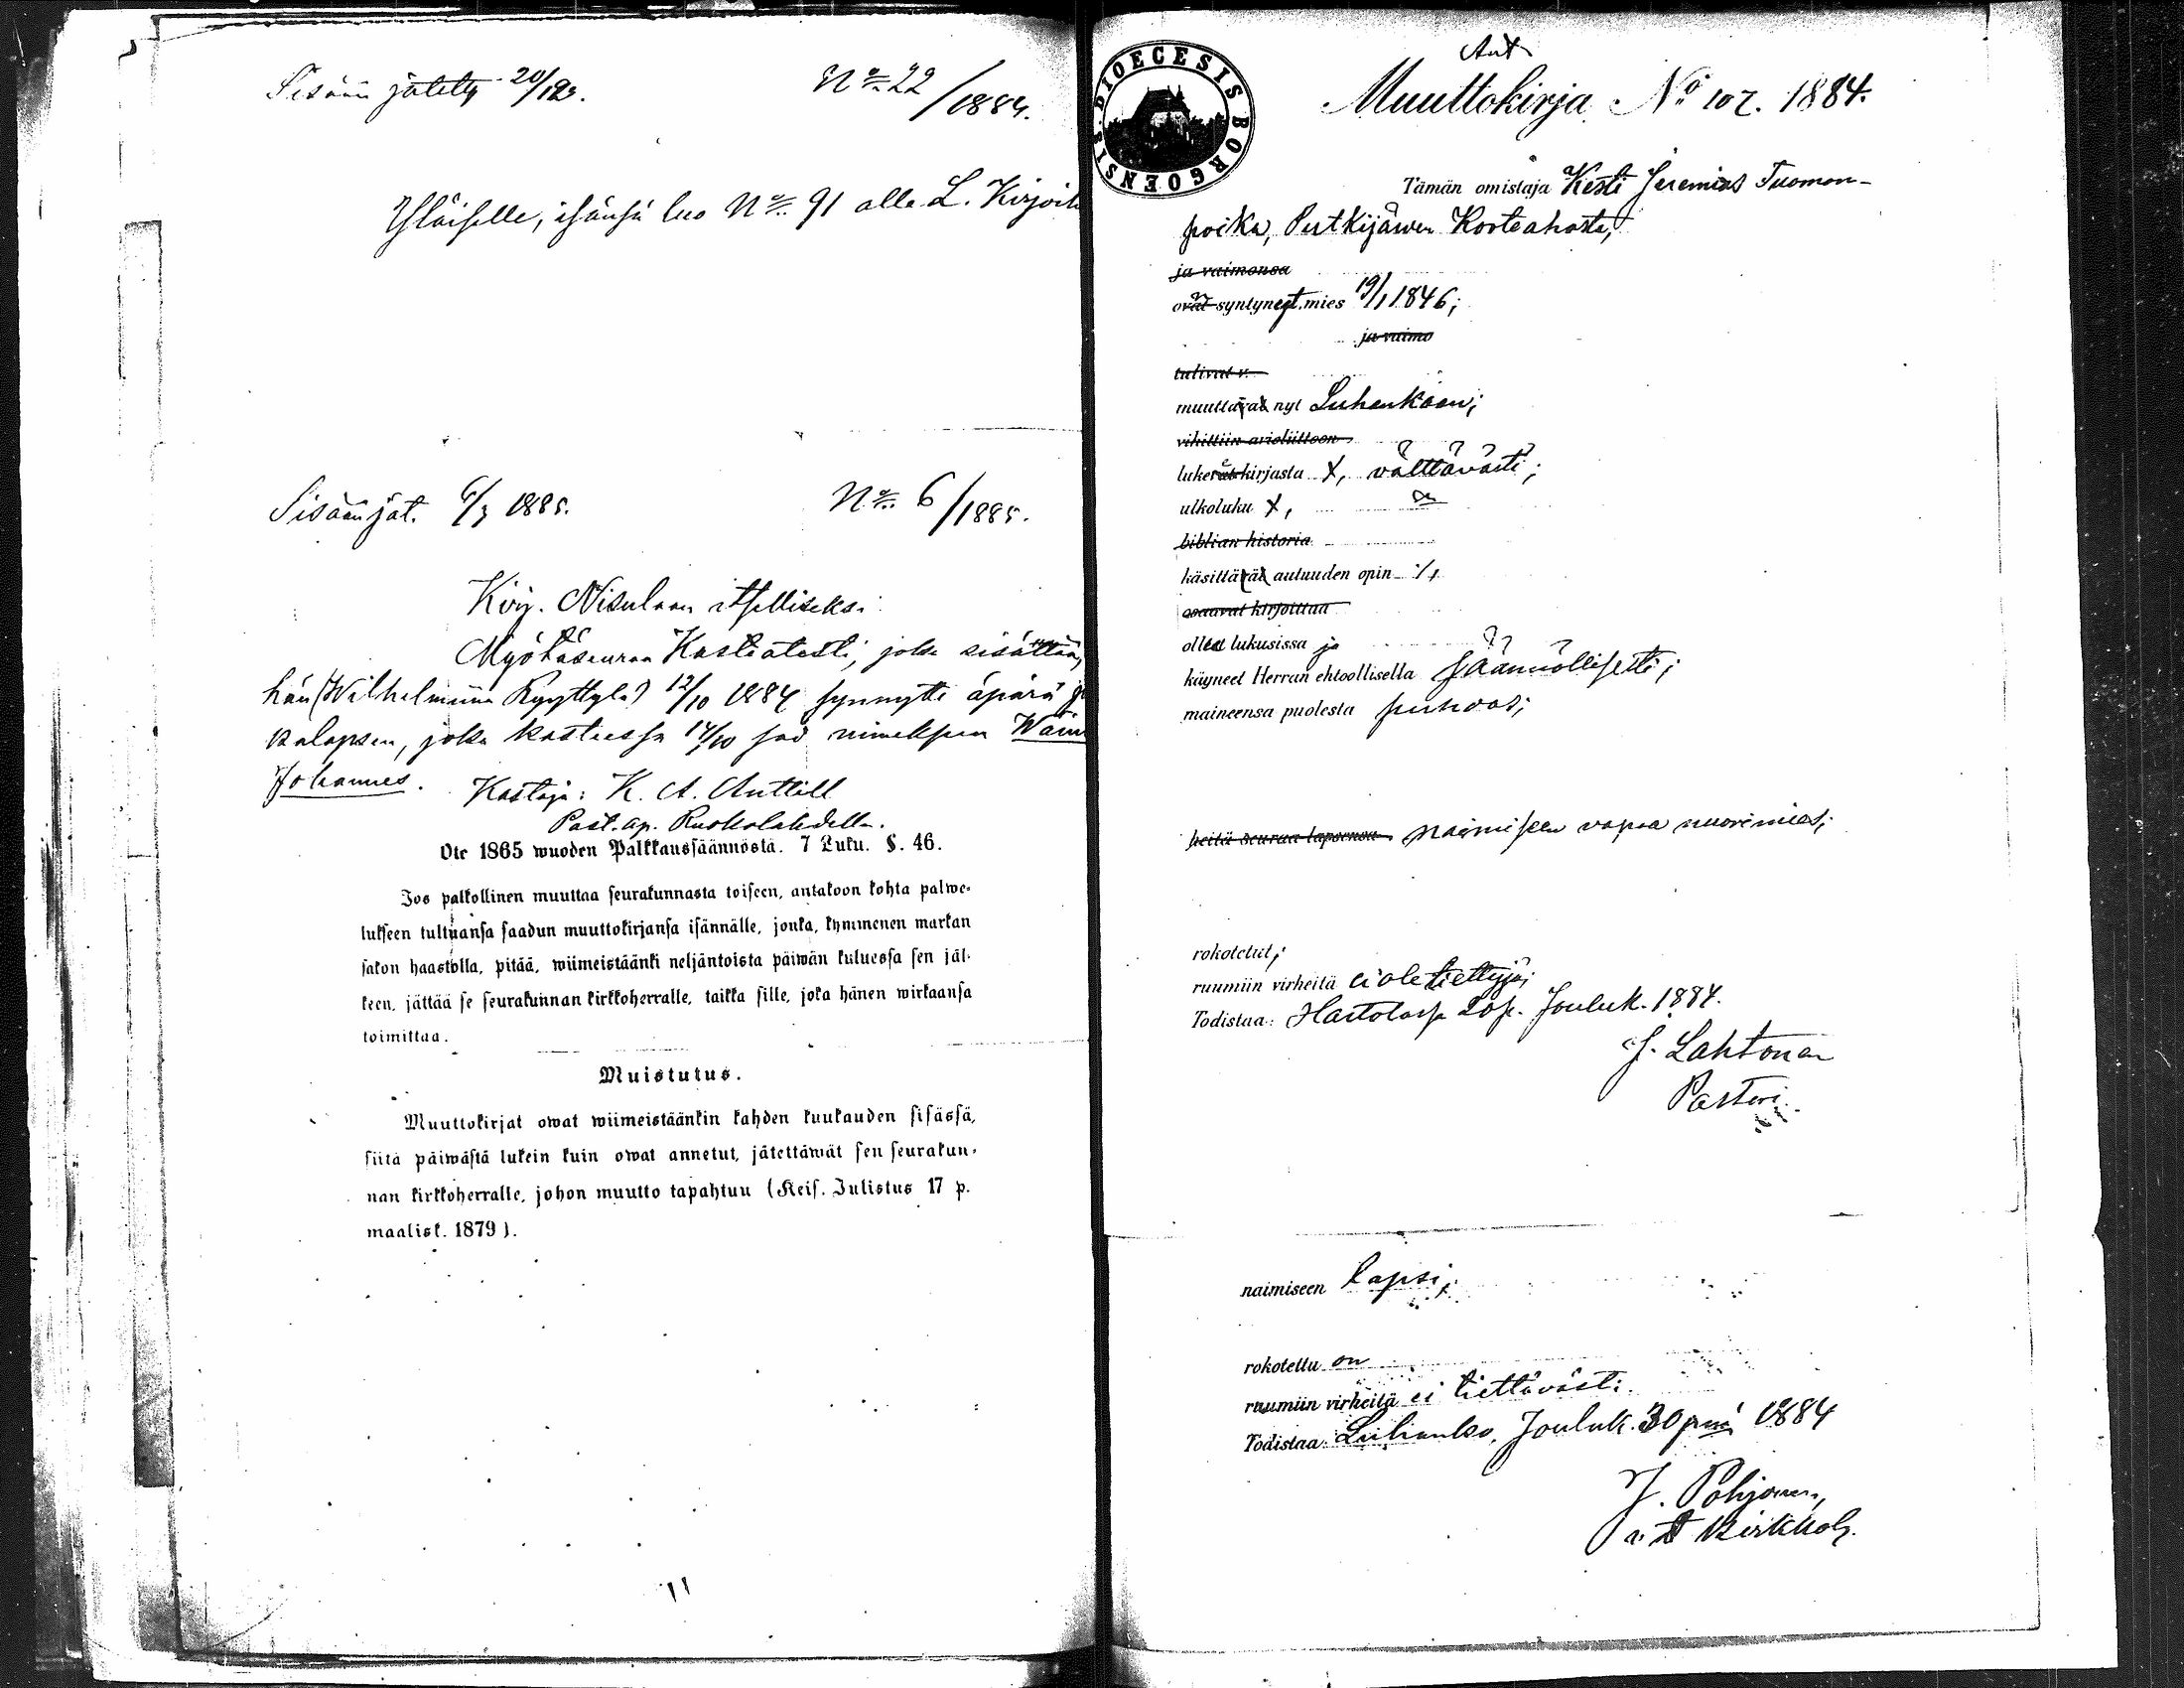 Sisään jätetty 20/1 83.
No 22/1884.
Yläiselle, isänsä luo No 91 alla L. Kirjoit
Sisään jät. 6/3 1885.
No 6/1885.
Kirj. Nisulaan itselliseksi.
Myötäseuraa Kasteatesti, joka sisältää,
hän (Wilhelmiina Ryyttylä) 12/10 1884 synnytti äpärä
kalapsen, joka kasteessa 14/10 sai nimeksen Wäin
Johannes. Kastaja: K. A. Anttill
Past. ap. Ruokolahdella.
Ote 1865 wuoden Palkkaussäännöstä. 7 Luku. §. 46.
Jos palkollinen muuttaa seurakunnasta toiseen, antakoon kohta palwe-
lukseen tultuansa saadun muuttokirjansa isännälle, jonka, kymmenen markan
sakon haastolla, pitää, wiimeistäänki neljäntoista päiwän kuluessa sen jäl-
keen, jättää se seurakunnan kirkkoherralle, taikka sille, joka hänen wirkaansa
toimittaa.
Muistutus.
Muuttokirjat owat wiimeistäänkin kahden kuukauden sisässä,
siitä päiwästä lukein kuin owat annetut, jätettäwät sen seurakun-
nan kirkkoherralle, johon muutto tapahtuu (Keis. Julistus 17 p.
maalisk. 1879).
DIOECESIS BORGOENSIS
Ant
Muuttokirja No 107. 1884.
Tämän omistaja Kesti Jeremias Tuomon-
poika, Putkijärwen Korteahosta,
ja vaimonsa
ovat syntynyt mies 19/1 1846;
ja vaimo
tulivat v.
muuttavat nyt Luhankaan;
vihittiin avioliittoon
lukevat kirjasta X, välttävästi;
ulkoluku X,
biblian historia
käsittävät autuuden opin
osaavat kirjoittaa
olleet lukusissa ja
käyneet Herran ehtoollisella säännöllisesti;
maineensa puolesta puhdas;
heitä seuraa lapsensa naimiseen vapaa nuorimies;
rokotetut;
ruumiin virheitä ei ole tiettyjä;
Todistaa: Hartolassa 20 p. Jouluk. 1884.
J. Lahtonen
Pastori.
naimiseen lapsi;
rokotettu on
ruumiin virheitä ei tiettävästi.
Todistaa: Luhanko, Jouluk. 30 pnä 1884
J. Pohjonen,
v. t. kirkkoh.